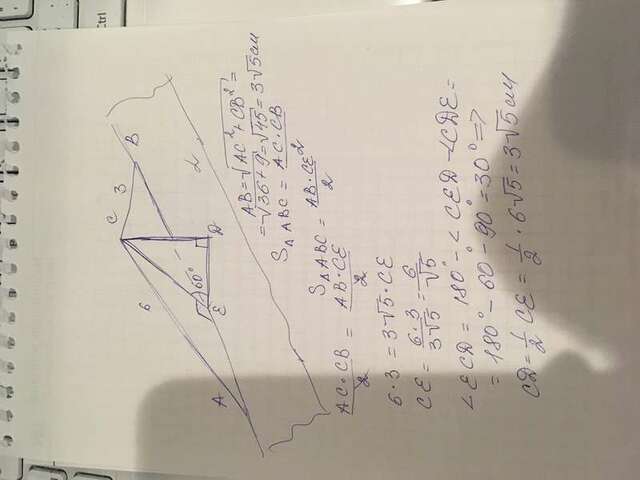 C
3
B
6
60°
D
E
A
α
AB=√AC²+CB² =
=√36+9=√45=3√5см
S△ABC = AC·CB / 2
S△ABC = AB·CE / 2
AC·CB / 2 = AB·CE / 2
6·3=3√5·CE
CE= 6·3 / 3√5 = 6 / √5
∠ECD=180°-∠CED-∠CDE=
=180°-60°-90°=30° =>
CD= 1/2 CE= 1/2 ·6√5=3√5см